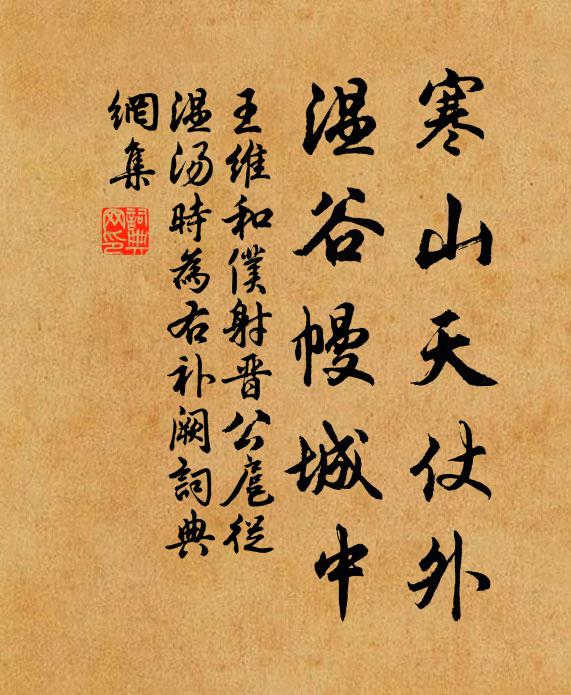 寒山天仗外
温谷幔城中
王維和僕射晋公扈從
温湯時為右补阙詞典
網集
詞典網印